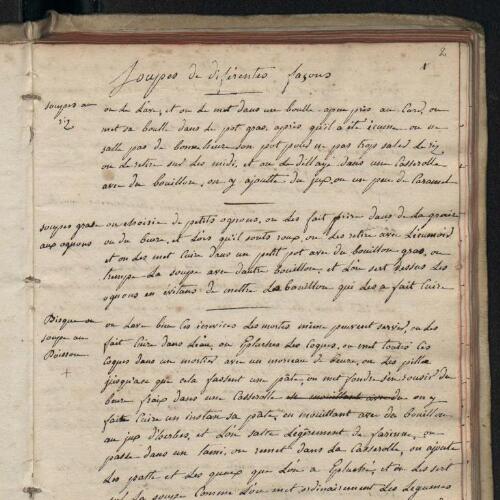 2
Soupes de diférentes façons
soupes au riz
on le lave, et on le met dans une boulle a peu près au card, on
met sa boulle dans le pot gras, après qu'il a été écumé on ne
salle pas de bonne heure son pot pour ne pas trop saler le riz
on le retire sur les midi, et on le dellaye dans une Casserolle
avec du bouillon, on y ajoutte du jux, ou un peu de Caramel
soupes gras aux ognons
on choisie de petits ognons, on les fait frire dans de la graisse
ou du beure, et lors qu'il sonts roux, on les retire avec l'écumoir
et on les met Cuire dans un petit pot avec du bouillon gras, on
trempe la soupe avec d'autre bouillon, et l'on sert dessus les
ognons en évitans de mettre le bouillon qui les a fait Cuire
Bisque ou soupe au Poisson
+
on lave bien les écrevices les mortes même peuvent servir, on les
fait Cuire dans l'eau, on épluches les coques, on met toutes les
coques dans un mortier avec un morceau de beure, on les pille
jusqu'ace que cela fassent une pâte, on met fondre s'en roussir du
beure fraix dans une Casserolle et mouillant avec de on y
fait Cuire un instan sa pâte, en mouillant avec du bouillon
au jux d'herbes, et l'on salte Légèrement de farinne, on
passe dans un tami, on remet dans la Casserolle, on ajoute
les patte et les queux que l'on a épluchés, et on les sert
sur la soupe Comme l'on met ordinairement les Legumes